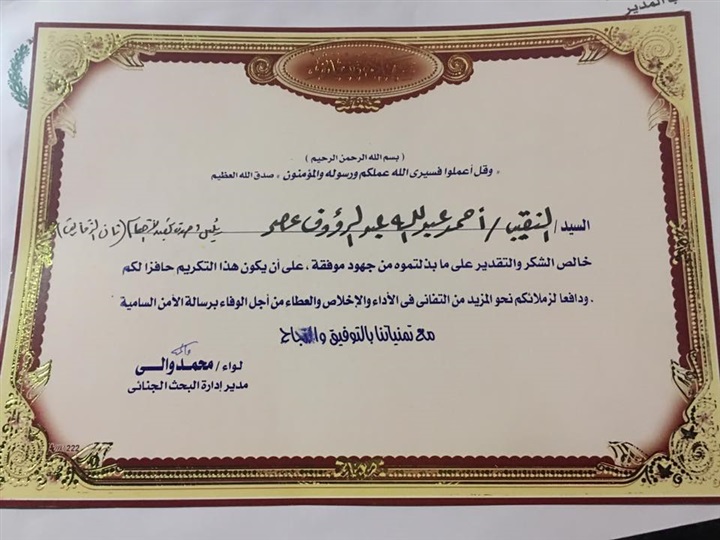 المدير
( بسم الله الرحمن الرحيم )
" وقل أعملوا فسيرى الله عملكم ورسوله والمؤمنون " صدق الله العظيم
السيد / النقيب / أحمد عبد الله عبد الرؤوف عصر
خالص الشكر والتقدير على ما بذلتموه من جهود موفقة ، على أن يكون هذا التكريم حافزا لكم
ودافعا لزملائكم نحو المزيد من التفانى فى الأداء والإخلاص والعطاء من أجل الوفاء برسالة الأمن السامية .
مع تمنياتنا بالتوفيق والنجاح
لواء / محمد والى
مدير إدارة البحث الجنائى
222